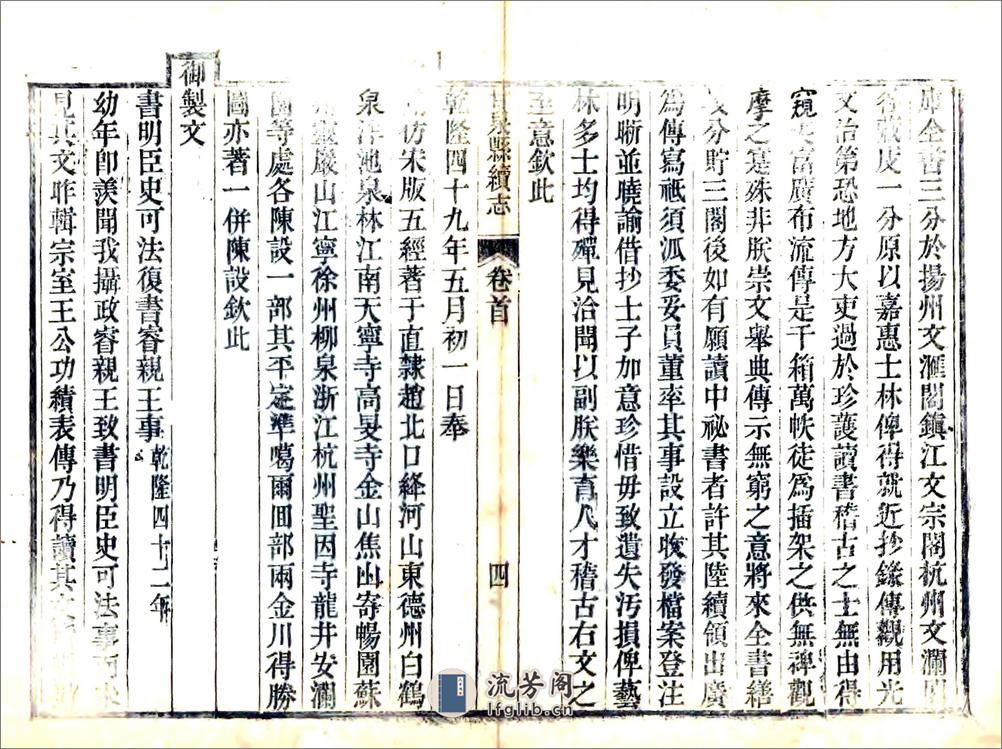 庫全書三分於揚州文滙閣鎮江文宗閣杭州文瀾閣
各藏庋一分原以嘉惠士林俾得就近抄錄傳觀用光
文治第恐地方大吏過於珍護讀書稽古之士無由得
窺美富廣布流傳是千箱萬帙徒為插架之供無裨觀
摩之實殊非朕崇文舉典傳示無窮之意將來全書繕
分貯三閣後如有願讀中祕書者許其陸續領出廣
為傳寫祗須派委妥員董率其事設立收發檔案登注
明晰並曉諭借抄士子加意珍惜毋致遺失污損俾藝
林多士均得殫見洽聞以副朕樂育人才稽古右文之
至意欽此
甘泉縣續志 卷首 四
乾隆四十九年五月初一日奉
仿宋版五經著于直隸趙北口絳河山東德州白鶴
泉泮池泉林江南天寧寺高旻寺金山焦山寄暢園蘇
州靈巖山江寧徐州柳泉浙江杭州聖因寺龍井安瀾
園等處各陳設一部其平定準噶爾回部兩金川得勝
圖亦著一併陳設欽此
御製文
書明臣史可法復書睿親王事 乾隆四十二年
幼年即羨聞我攝政睿親王致書明臣史可法事而未
見其文昨輯宗室王公功績表傳乃得讀其文
流芳阁
lfglib.cn